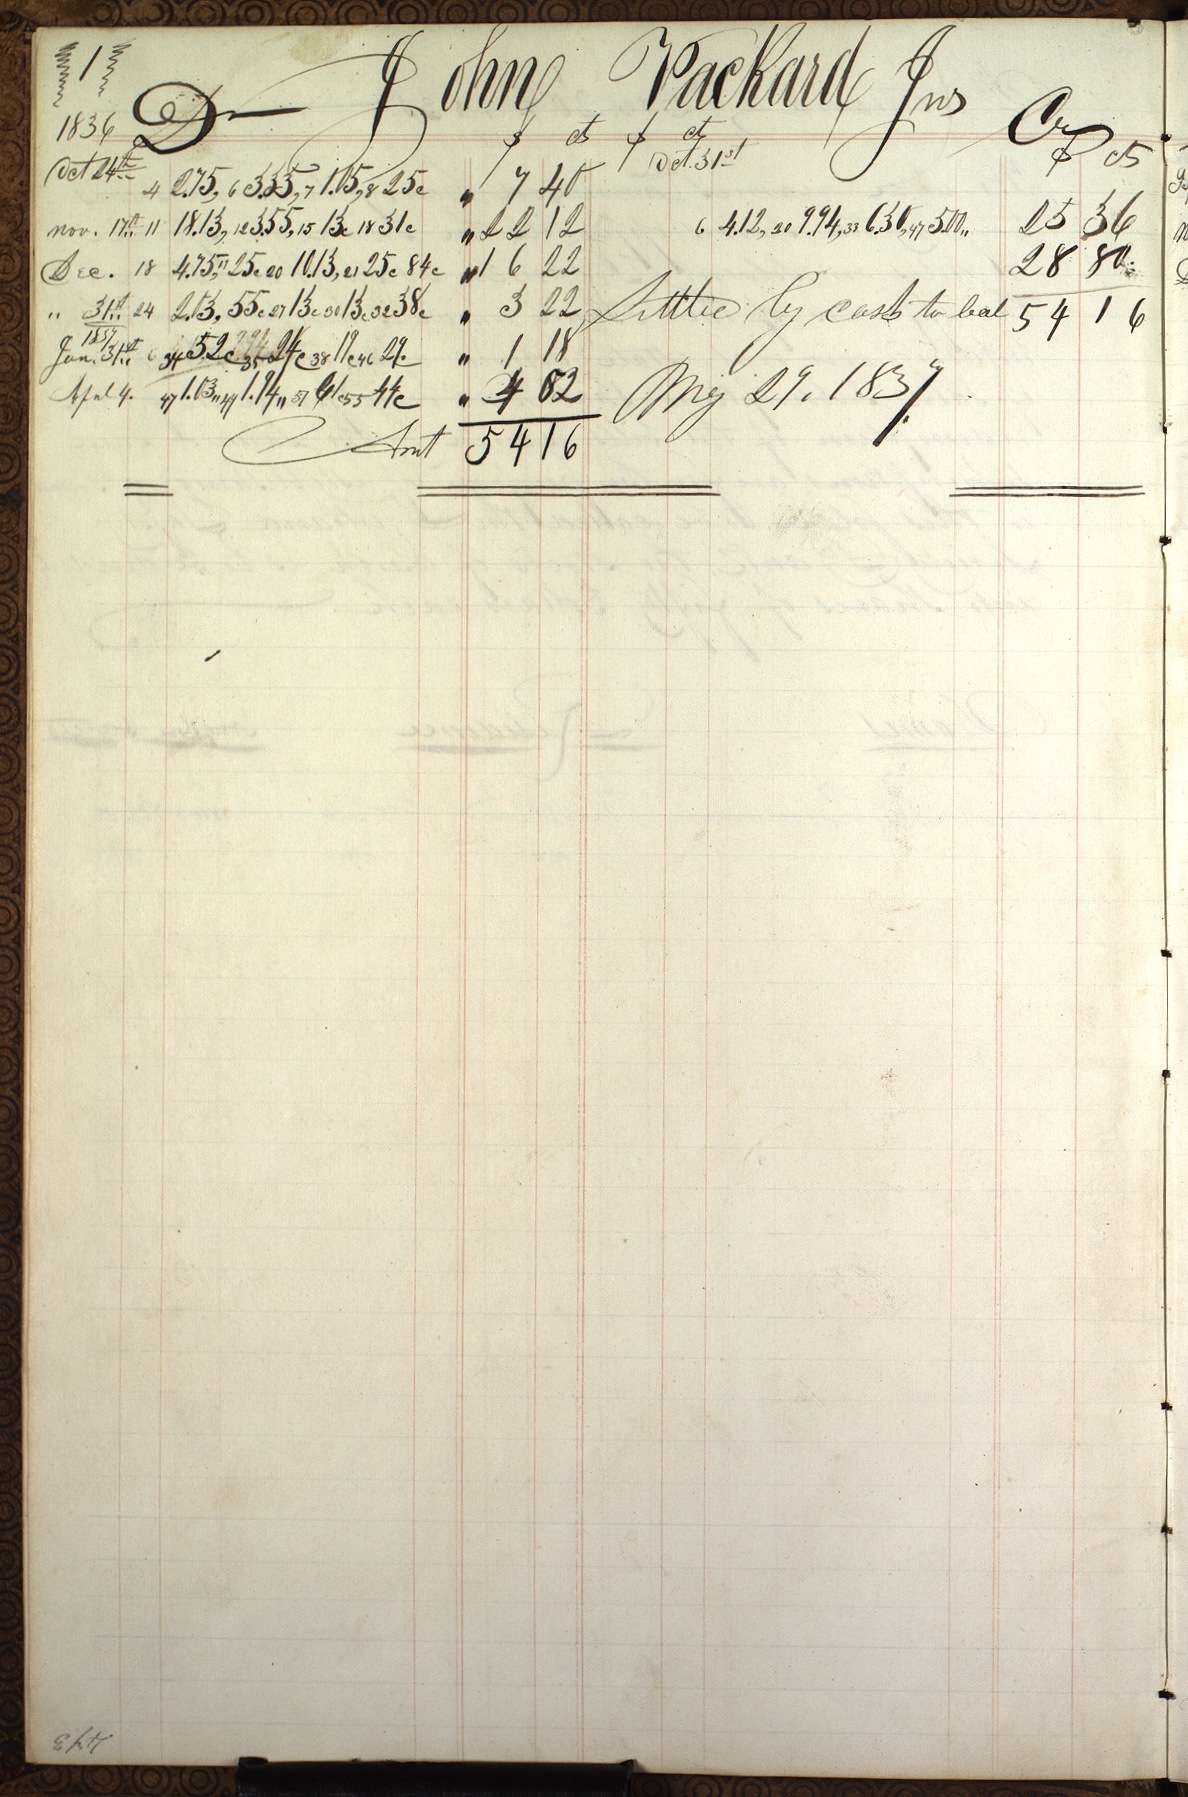 1
John Packard Jns
Dr Cr
1836 $ ct $ ct $ cts
Oct 24th 4 2.75, 6 3.35, 7 1.05, 8 25c " 7 40 Oct. 31st
nov. 17th 11 18.13, 12 3.55, 15 13c 18 31c " 22 12 6 4.12, 20 9.94, 33 6.30, 47 5.00,, 25 36
Dec. 18 4.75" 25c 20 10.13, 21 25c 84c " 16 22 28 80
" 31st 24 2.13, 55c 27 13c 30 13c 32 38c " 3 22 Settled by cash to bal 54 16
1837
Jan. 31st 34 52c 35 24c 38 19c 46 29c " 1 18
Apl 4. 47 1.03,, 49 1.94,, 51 61c 55 44c " 4 02 May 29. 1837.
Amt 54 16